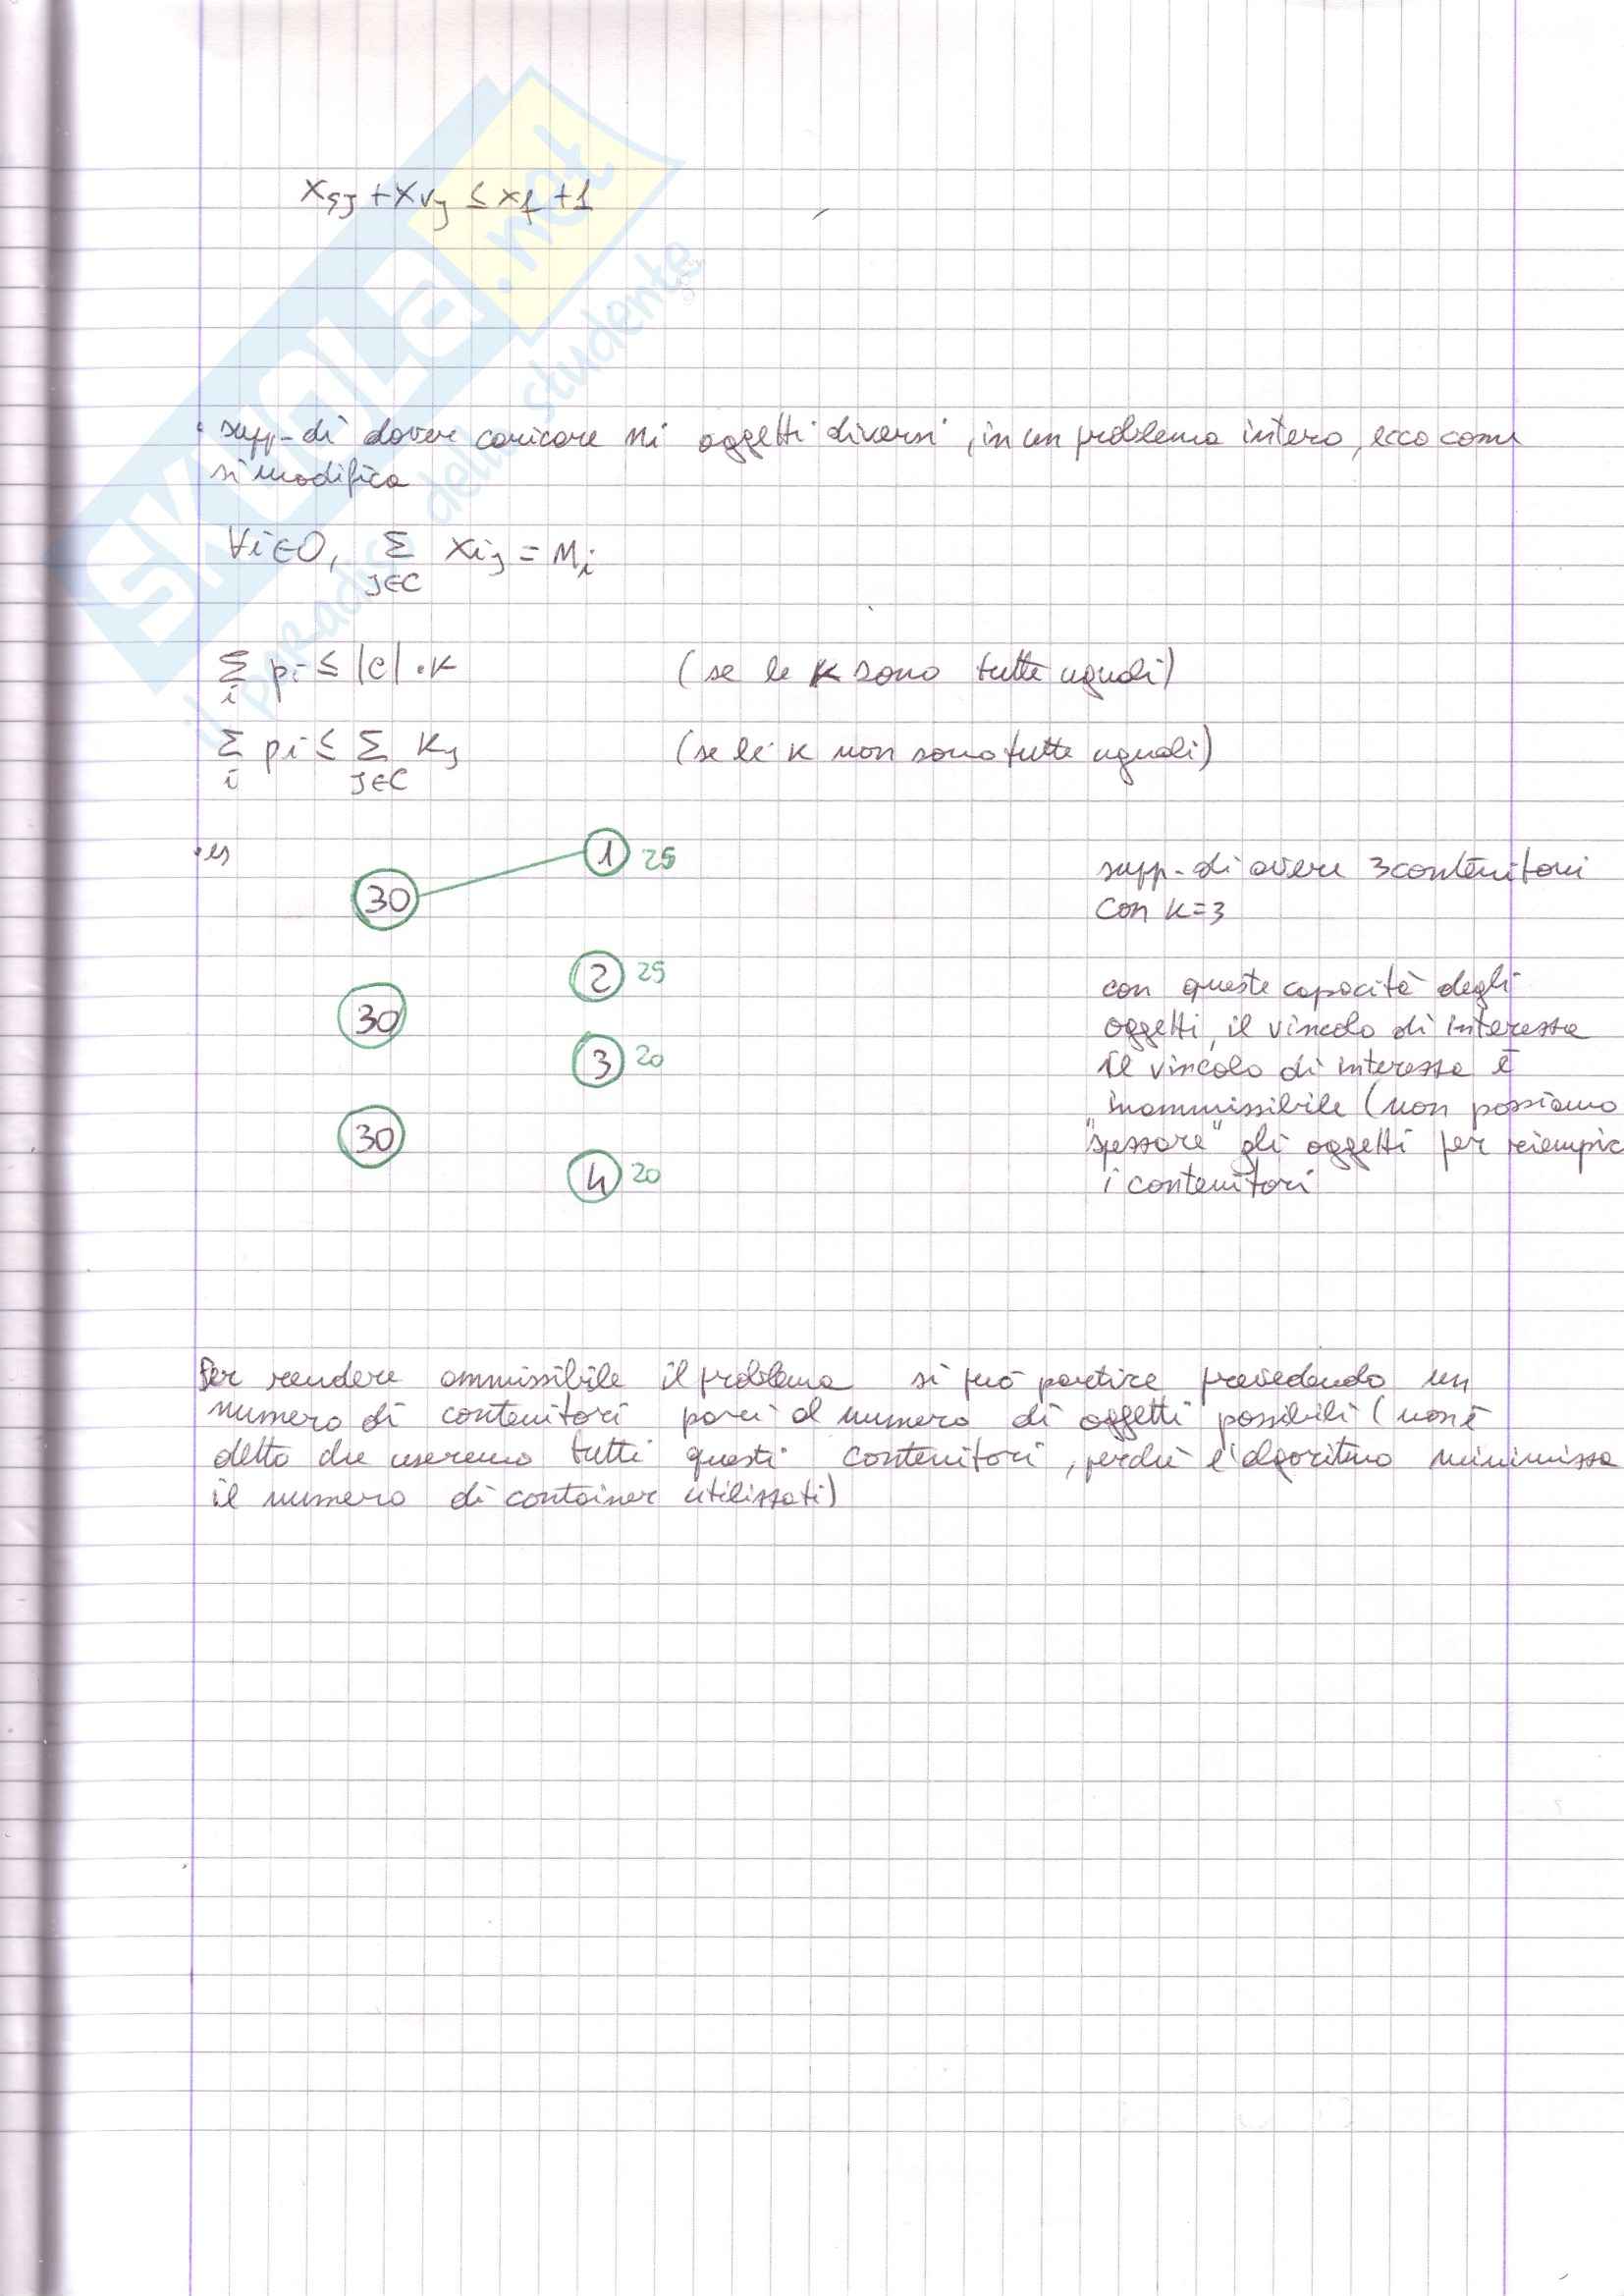 x_{sj} + x_{vj} ≤ x_f + 1
• supp. di dovere caricare Mi oggetti diversi, in un problema intero, ecco come
si modifica
∀i∈O, Σ_{J∈C} x_{ij} = M_i
Σ_i p_i ≤ |C|·K (se le K sono tutte uguali)
Σ_i p_i ≤ Σ_{J∈C} K_j (se le K non sono tutte uguali)
• es
30
30
30
1 25
2 25
3 20
4 20
supp. di avere 3 contenitori
con K=3
con queste capacità degli
oggetti, il vincolo di interezza
il vincolo di interezza è
inammissibile (non possiamo
"spezzare" gli oggetti per riempire
i contenitori
Per rendere ammissibile il problema si può partire prevedendo un
numero di contenitori pari al numero di oggetti possibili (non è
detto che useremo tutti questi contenitori, perché l'algoritmo minimizza
il numero di container utilizzati)
SKUOLa.net
il paradiso dello studente